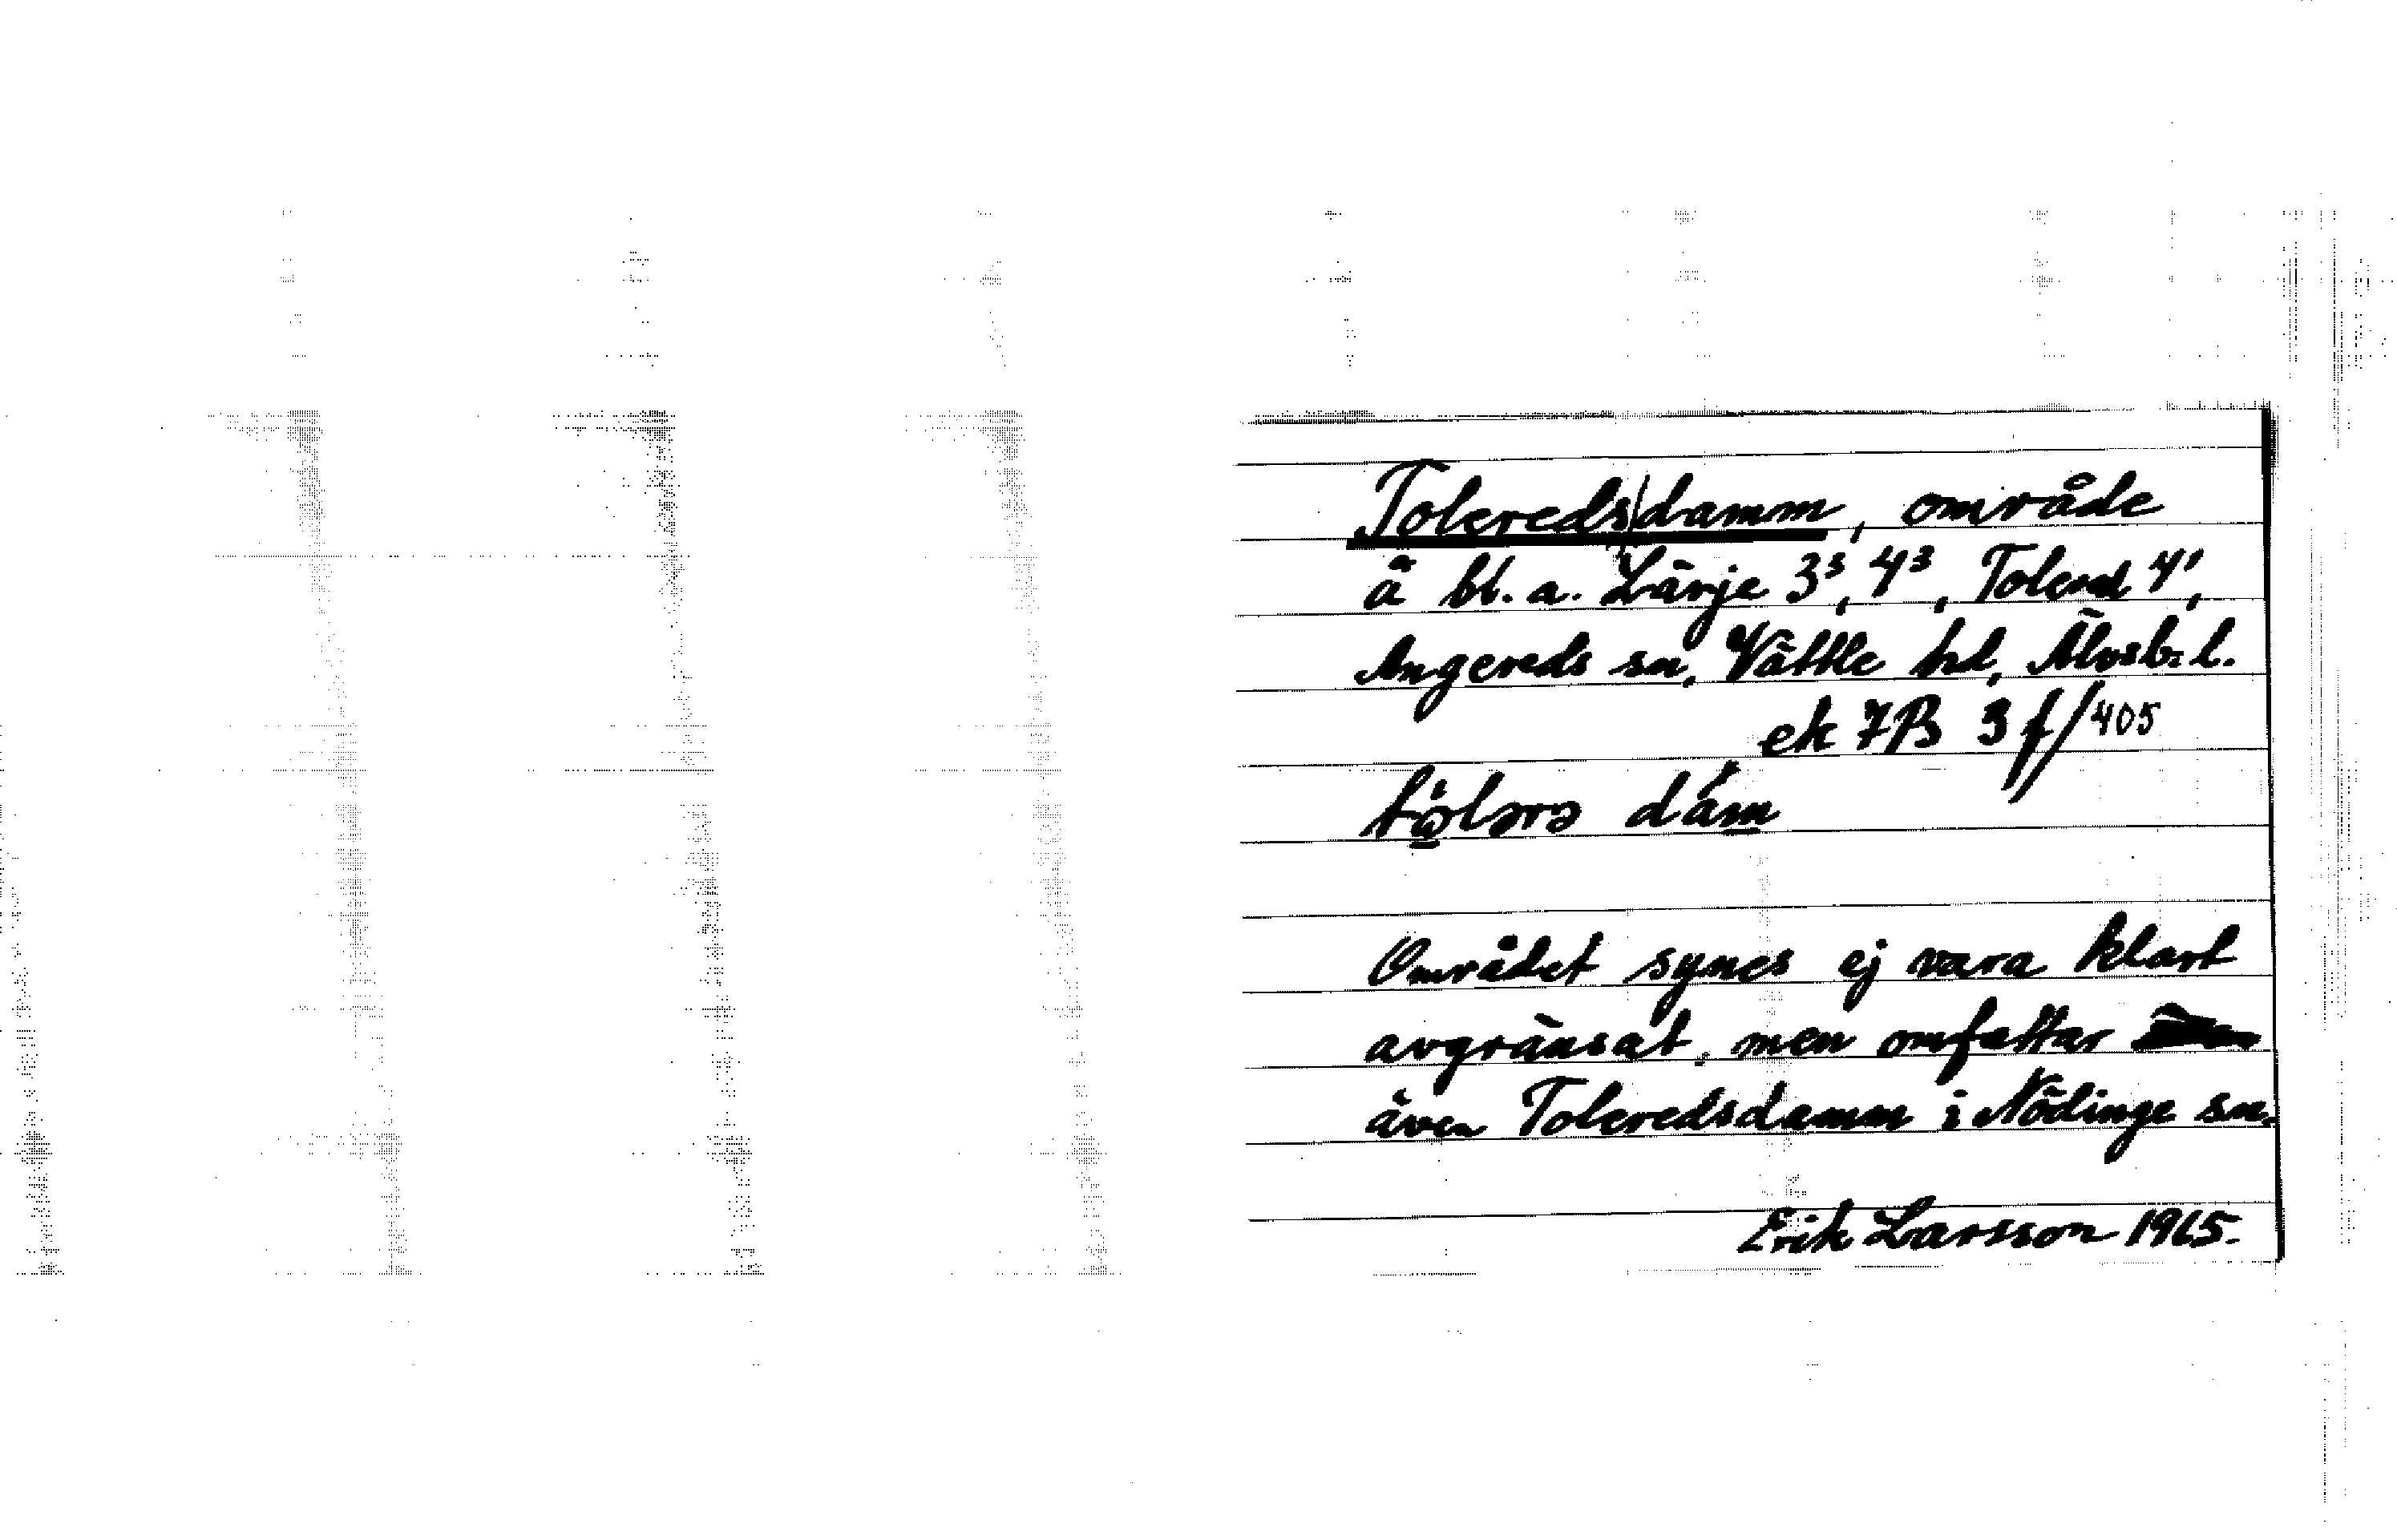 Toleredsdamm, område
å bl. a. Lärje 3³, 4³, Tolered 4¹,
Angereds sn, Vättle hd, Älvsb. l.
ek 7B 3 f/405
dám
Området synes ej vara klart
avgränsat, men omfattar
även Toleredsdamm i Nödinge sn.
Erik Larsson 1965.